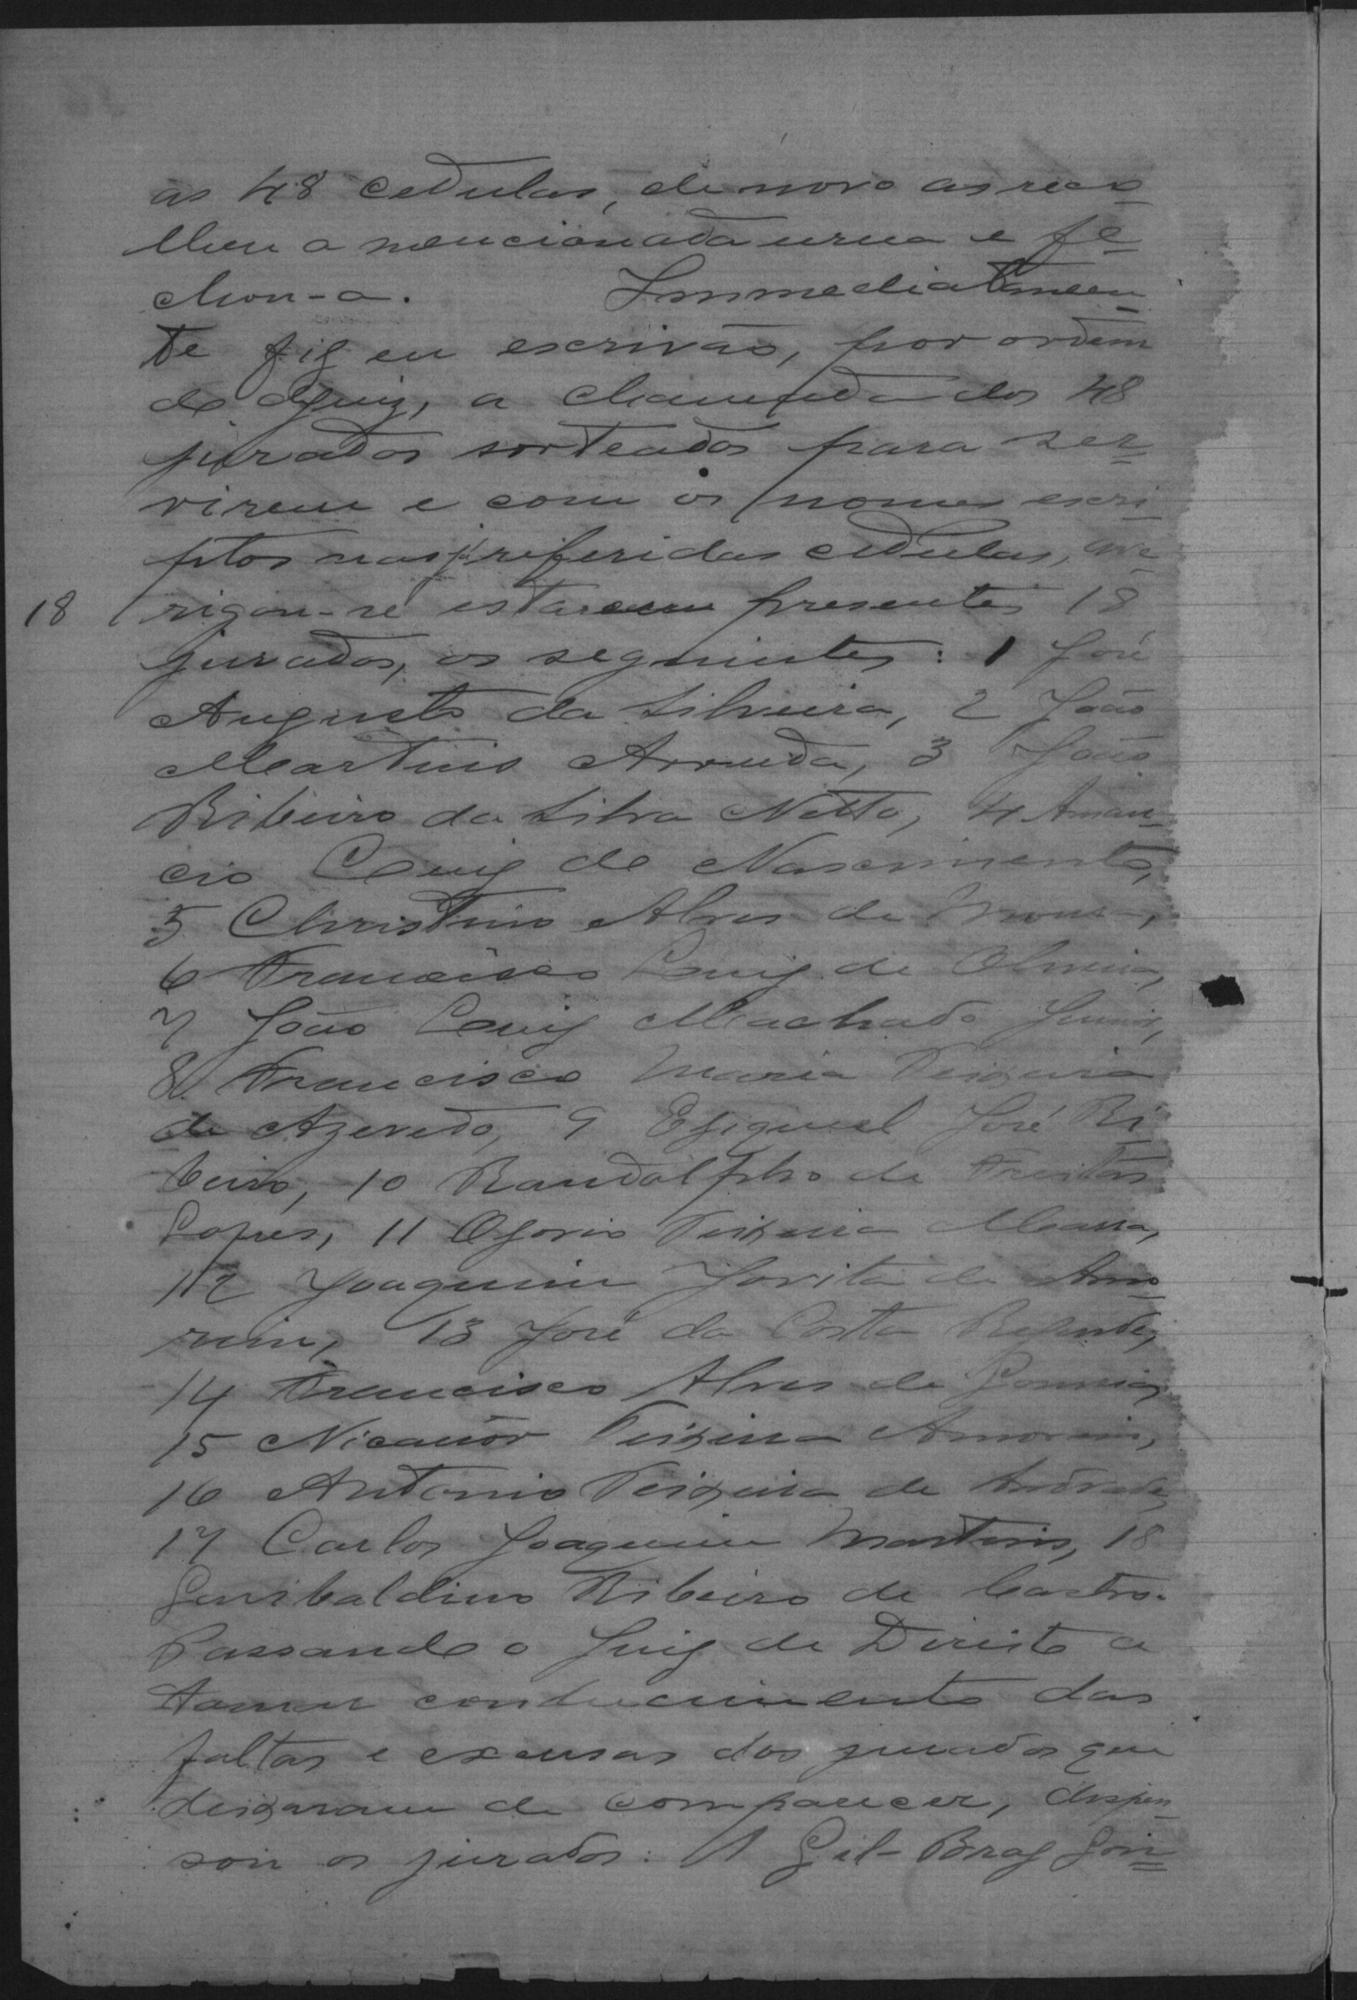 as 48 cedulas, de novo as reco-
lheu a mencionada urna e fe-
chou-a. Immediatamen-
te fiz eu escrivão, por ordem
do Juiz, a chamada dos 48
jurados sorteados para ser-
virem e com os nomes escri-
ptos nas referidas cedulas, ave-
18 rigou-se estarem presentes 18
jurados, os seguintes: 1 José
Augusto da Silveira, 2 João
Martins Arruda, 3 João
Ribeiro da Silva Netto, 4 Aman-
cio Luiz do Nascimento,
5 Christino Alves de Moura,
6 Francisco Luiz de Oliveira,
7 João Luiz Machado Junior,
8 Francisco Maria Teixeira
de Azevedo, 9 Eziquiel José Ri-
beiro, 10 Randolpho de Freitas
Lopes, 11 Ozorio Teixeira
12 Joaquim Jovita de Amo-
rim, 13 José da Costa
14 Francisco Alves de
15 Nicanôr Teixeira Amorim,
16 Antonio Teixeira de Andrade,
17 Carlos Joaquim Martins, 18
Garibaldino Ribeiro de Castro.
Passando o Juiz de Direito a
tomar conhecimento das
faltas e excusas dos jurados que
deixaram de comparecer, dispen-
sou os jurados: 1 Gil Braz Gon=